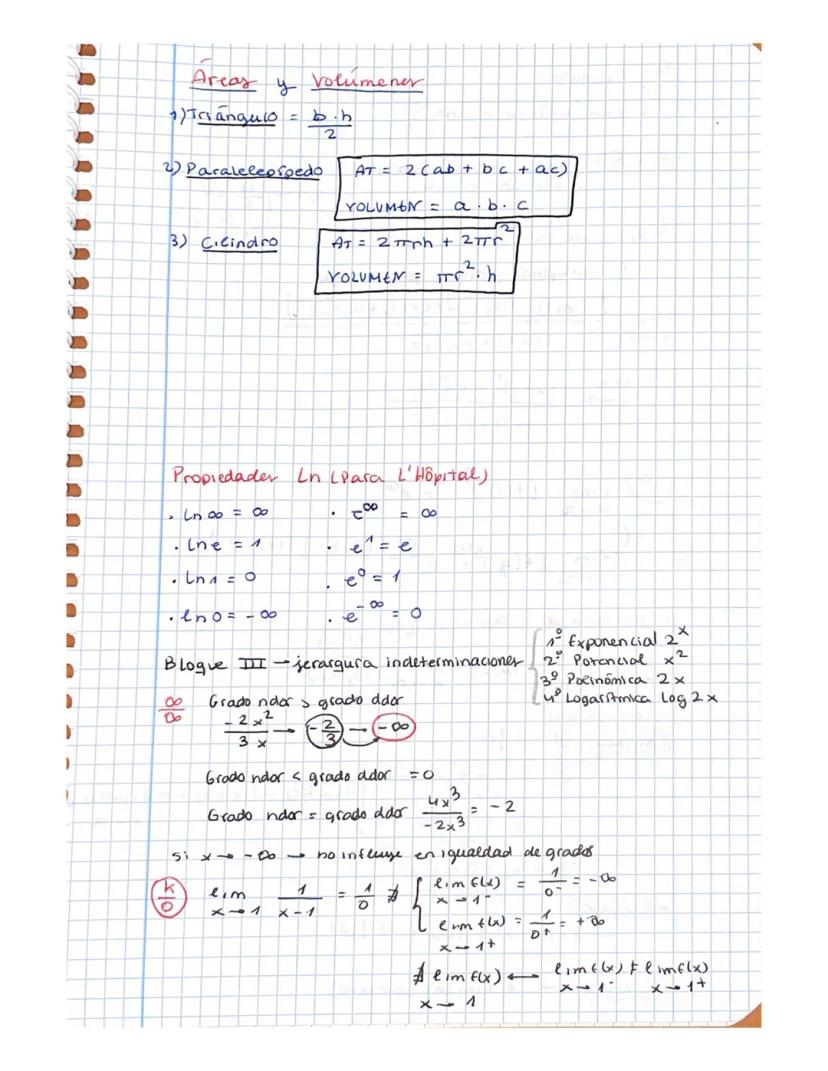 Áreas y Volúmenes
1) Triángulo = b·h / 2
2) Paralelepípedo AT = 2(ab + bc + ac)
VOLUMEN = a · b · c
3) Cilindro AT = 2πrh + 2πr²
VOLUMEN = πr² · h
Propiedades Ln (Para L'Hôpital)
· Ln ∞ = ∞ · e^∞ = ∞
· Ln e = 1 · e¹ = e
· Ln 1 = 0 · e⁰ = 1
· ln 0 = -∞ · e^-∞ = 0
Bloque III → jerarquía indeterminaciones { 1º Exponencial 2^x
2º Potencial x²
3º Polinómica 2x
4º Logarítmica log 2x
∞/∞ Grado ndor > grado ddor
-2x² / 3x → -2/3 → -∞
Grado ndor < grado ddor = 0
Grado ndor = grado ddor 4x³ / -2x³ = -2
Si x → -∞ → no influye en igualdad de grados
k/0 lim x→1 1/x-1 = 1/0 ∄ { lim f(x) x→1⁻ = 1/0⁻ = -∞
lim f(x) x→1+ = 1/0⁺ = +∞
∄ lim f(x) x→1 ← lim f(x) x→1⁻ ≠ lim f(x) x→1+